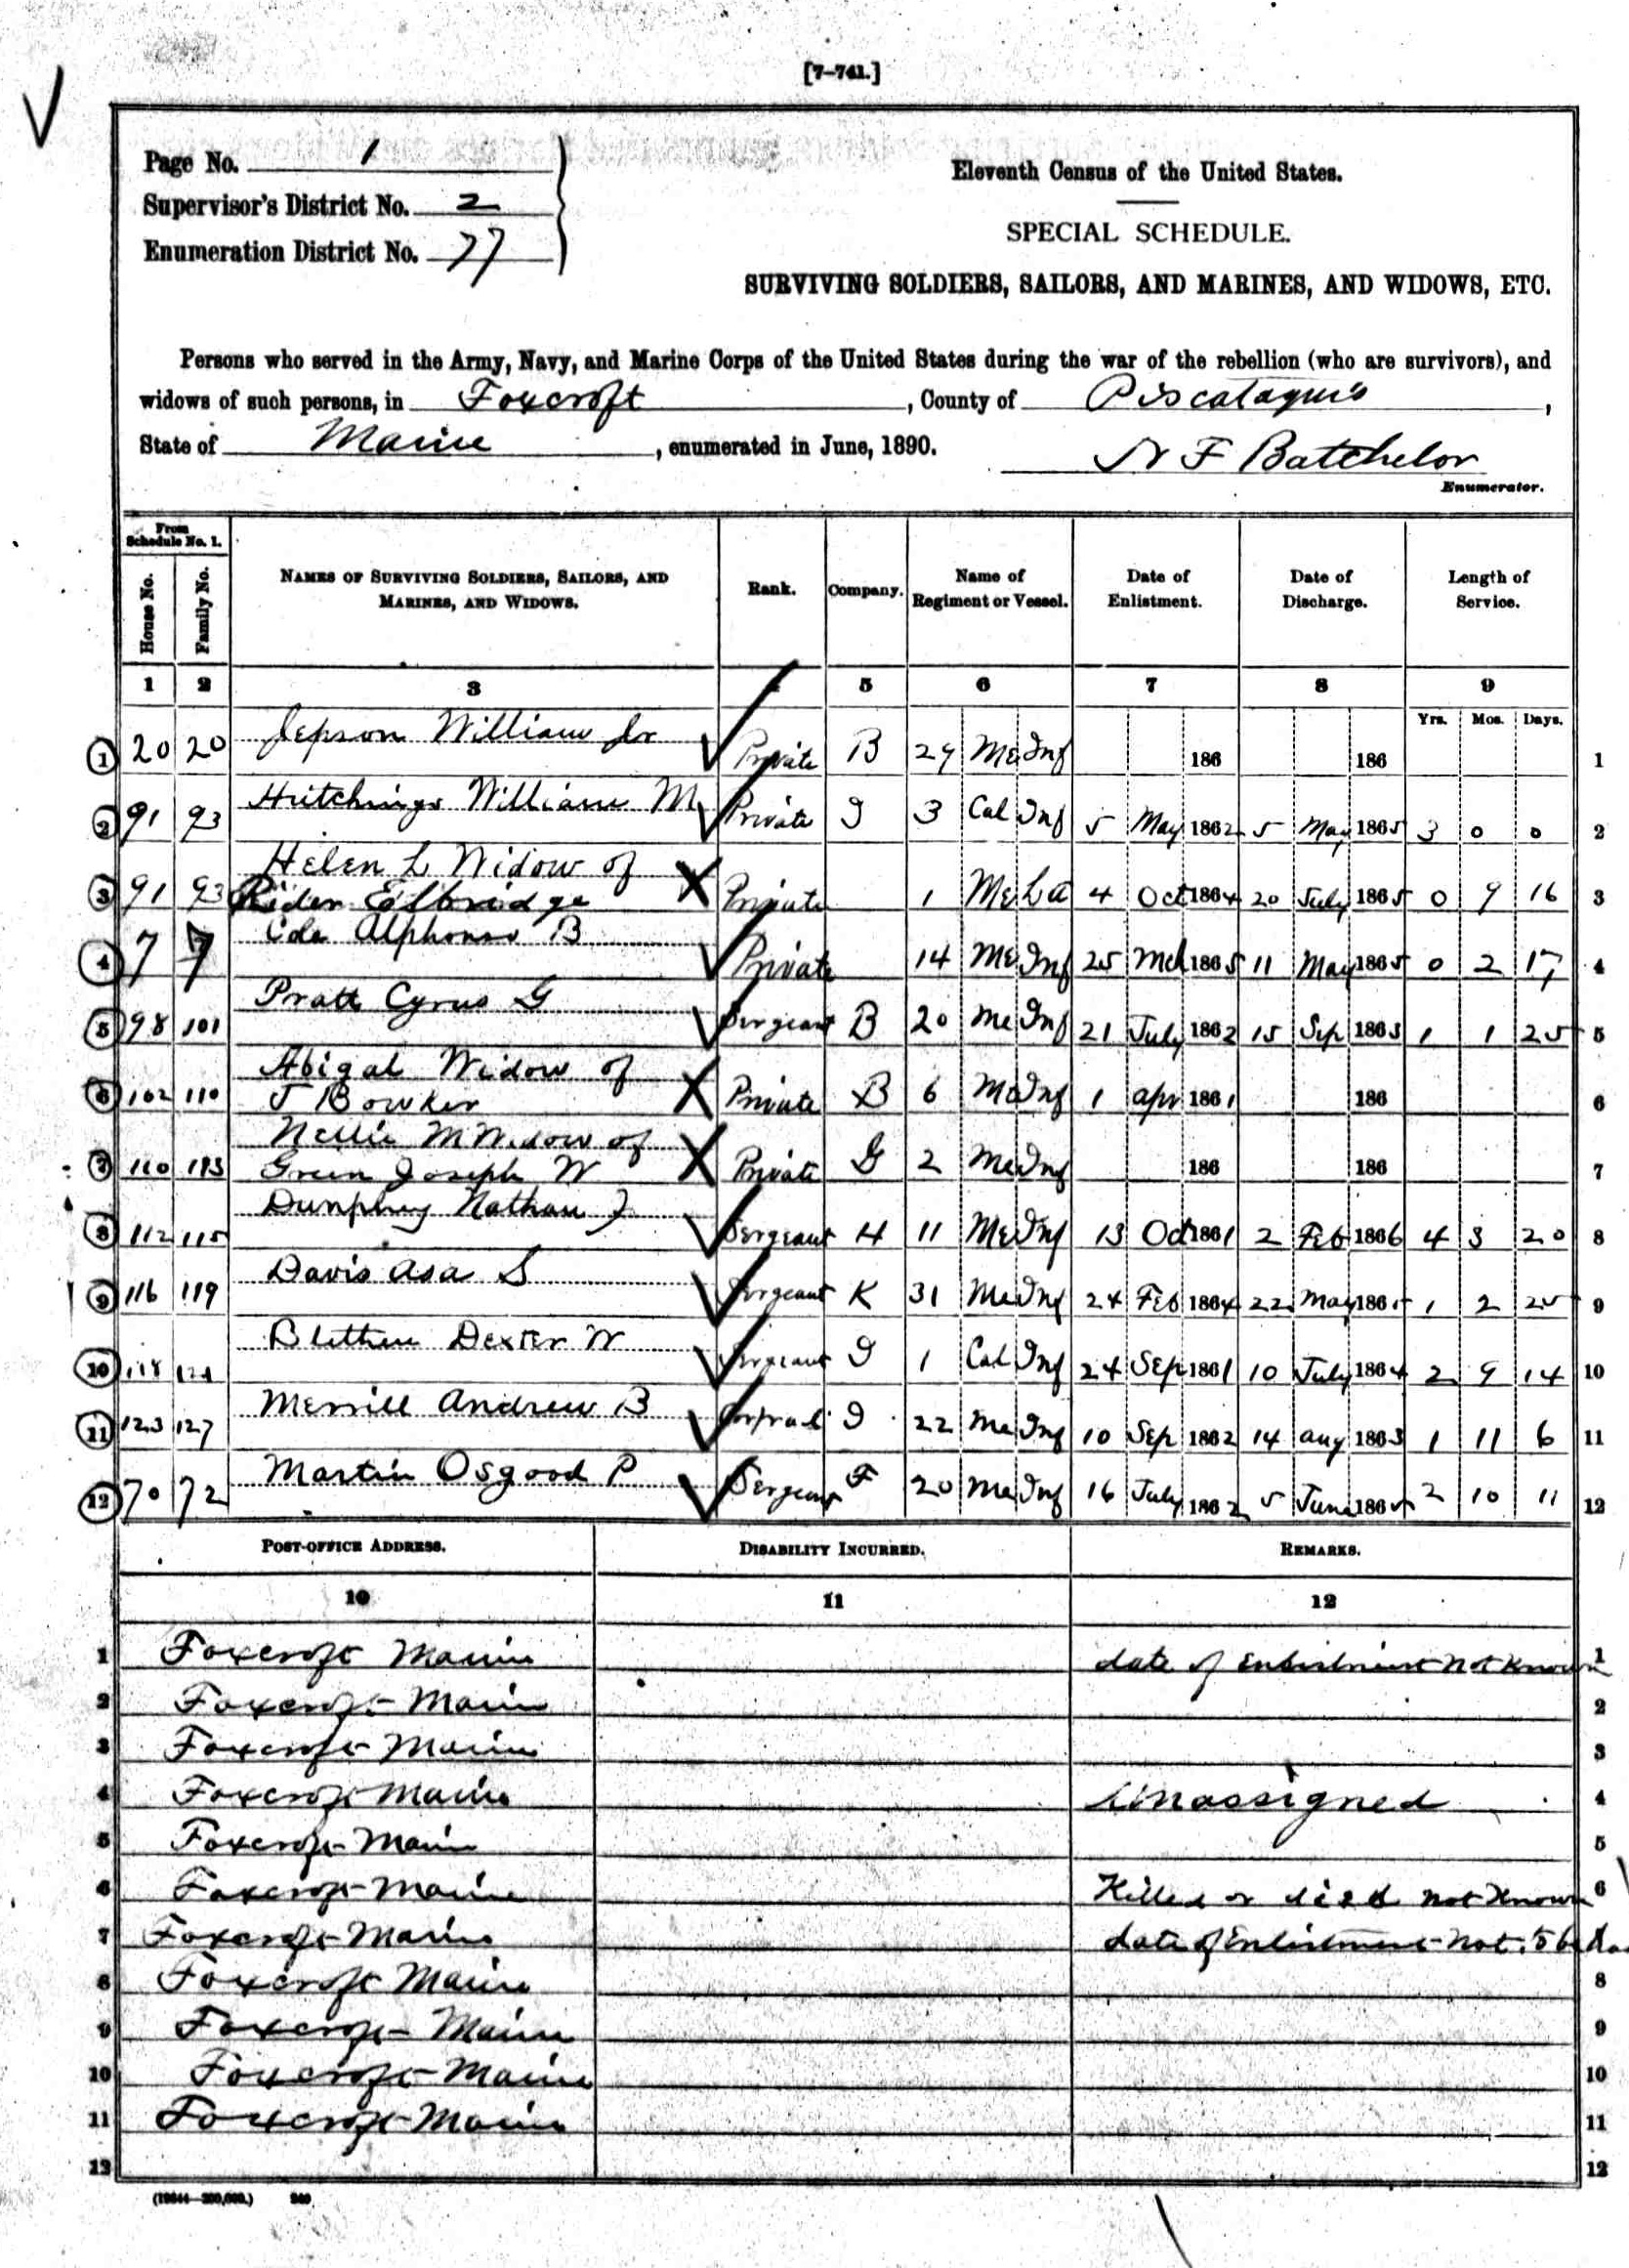 [7-741.]
Page No. 1
Supervisor's District No. 2
Enumeration District No. 77
Eleventh Census of the United States.
SPECIAL SCHEDULE.
SURVIVING SOLDIERS, SAILORS, AND MARINES, AND WIDOWS, ETC.
Persons who served in the Army, Navy, and Marine Corps of the United States during the war of the rebellion (who are survivors), and
widows of such persons, in Foxcroft, County of Piscataquis,
State of Maine, enumerated in June, 1890.
N F Batchelor
Enumerator.
From Schedule No. 1.
House No. Family No.
NAMES OF SURVIVING SOLDIERS, SAILORS, AND MARINES, AND WIDOWS.
Rank. Company. Name of Regiment or Vessel. Date of Enlistment. Date of Discharge. Length of Service.
1 2 3 5 6 7 8 9
Yrs. Mos. Days.
1 20 20 Jepson William Jr Private B 29 Me Inf 186 186 1
2 91 93 Hutchings William M Private I 3 Cal Inf 5 May 1862 5 May 1865 3 0 0 2
Helen L Widow of
3 91 93 Rider Elbridge Private 1 Me L a 4 Oct 1864 20 July 1865 0 9 16 3
4 7 7 Cole Alphonso B Private 14 Me Inf 25 Mch 1865 11 May 1865 0 2 17 4
5 98 101 Pratt Cyrus G Sergeant B 20 Me Inf 21 July 1862 15 Sep 1863 1 1 25 5
Abigal Widow of
6 102 110 J Bowker Private B 6 Me Inf 1 apr 1861 186 6
Nellie M Widow of
7 110 113 Green Joseph W Private G 2 Me Inf 186 186 7
8 112 115 Dunphy Nathan J Sergeant H 11 Me Inf 13 Oct 1861 2 Feb 1866 4 3 20 8
9 116 119 Davis asa S Sergeant K 31 Me Inf 24 Feb 1864 22 May 1865 1 2 25 9
10 118 121 Blethen Dexter W Sergeant I 1 Cal Inf 24 Sep 1861 10 July 1864 2 9 14 10
11 123 127 Merrill Andrew B Corpral I 22 Me Inf 10 Sep 1862 14 aug 1863 1 11 6 11
12 70 72 Martin Osgood P Sergeant F 20 Me Inf 16 July 1862 5 June 1865 2 10 11 12
POST-OFFICE ADDRESS. DISABILITY INCURRED. REMARKS.
10 11 12
1 Foxcroft Maine date of Enlistment Not Known 1
2 Foxcroft Maine 2
3 Foxcroft Maine 3
4 Foxcroft Maine Unassigned 4
5 Foxcroft Maine 5
6 Foxcroft Maine Killed or died not Known 6
7 Foxcroft Maine date of Enlistment Not to be
8 Foxcroft Maine 8
9 Foxcroft Maine 9
10 Foxcroft Maine 10
11 Foxcroft Maine 11
12 12